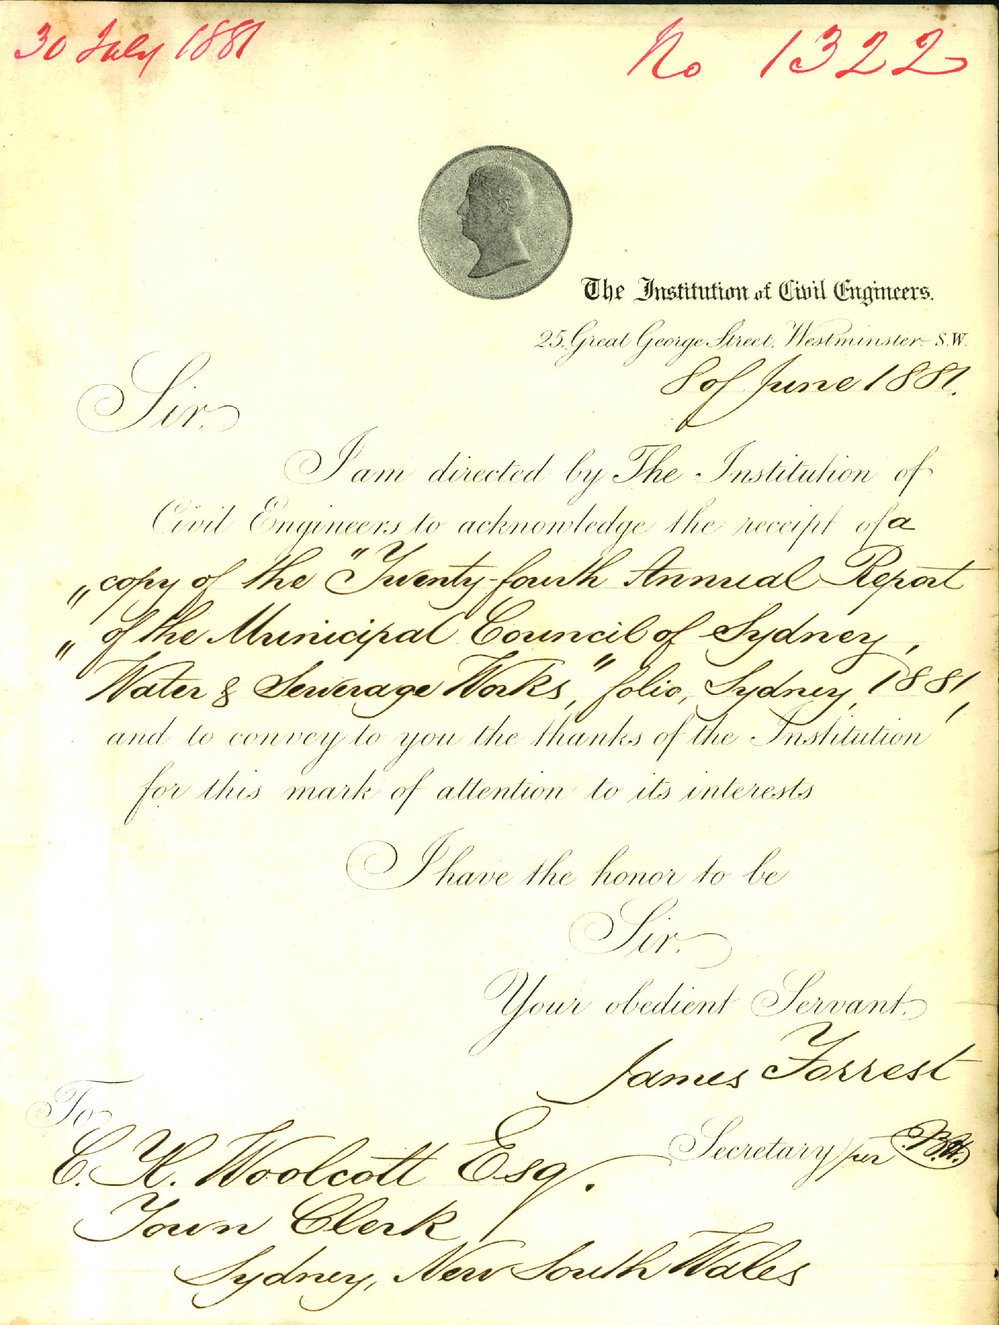 30 July 1881
No 1322
The Institution of Civil Engineers.
25, Great George Street, Westminster, S.W.
8 of June 1881.
Sir,
I am directed by The Institution of
Civil Engineers to acknowledge the receipt of a
„copy of the "Twenty-fourth Annual Report
„of the Municipal Council of Sydney,
Water & Sewerage Works," folio, Sydney, 1881,
and to convey to you the thanks of the Institution
for this mark of attention to its interests
I have the honor to be
Sir,
Your obedient Servant,
James Forrest
Secretary per
To
C. H. Woolcott Esq.
Town Clerk
Sydney, New South Wales